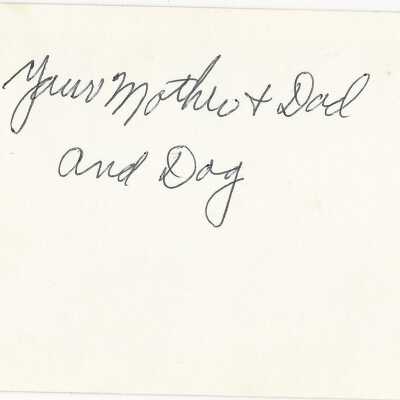 Your Mother + Dad
and Dog